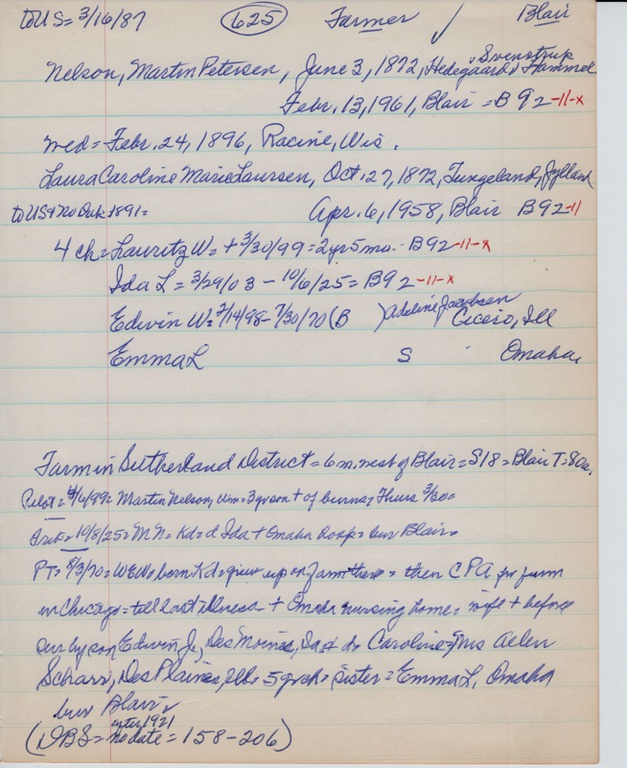 to US = 3/16/87 625 Farmer ✓ Blair
Nelson, Martin Petersen, June 3, 1872, Hedegaard, Svenstrup, Hammel
Febr. 13, 1961, Blair = B 92-11-x
med = Febr. 24, 1896, Racine, Wis.
Laura Caroline Marie Laursen, Oct. 27, 1872, Jylland
to US + No Dak 1891 = Apr. 6, 1958, Blair B92-11
4 ch = Lauritz W = + 3/30/99 = 2 yr 5 mo - B92-11-x
Ida L = 3/29/03 - 10/6/25 = B92-11-x
Edwin W = /14/98 - 7/30/70 (B ) Adeline Jacobsen Cicero, Ill
Emma L S Omaha
Farm in Sutherland District = 6 m. west of Blair = S18 = Blair T = 80a.
Pilot = 4/6/99 = Martin Nelson, 3 yr son + of burns, Thurs 3/30 =
10/8/25 = M N = Kd = d Ida + Omaha hosp = bur Blair =
PT = 8/3/70 = WEW = born Kd = grew up on farm there = then CPA for firm
in Chicago = till last illness + Omaha nursing home = wife + before
sur by son Edwin Jr, Des Moines, Ia + d = Caroline = Mrs Allen
Scharr, Des Plaines, Ill = 5 grch = sister = Emma L, Omaha
bur Blair
(DBS = no date = after 1921 = 158-206)